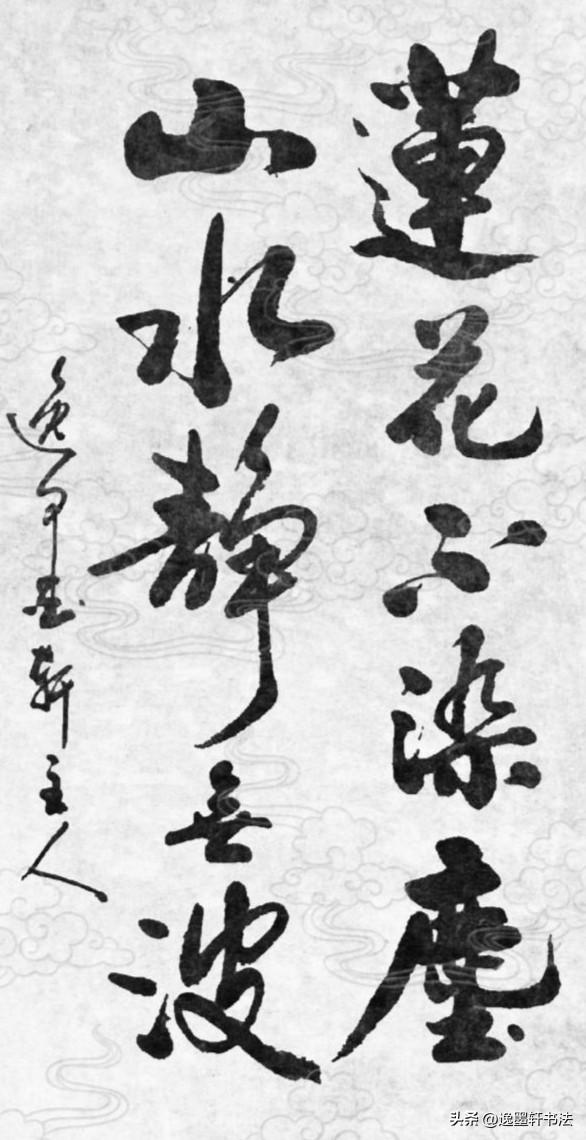 蓮花不染塵
山水靜無波
逸軒主人
头条 @逸墨轩书法